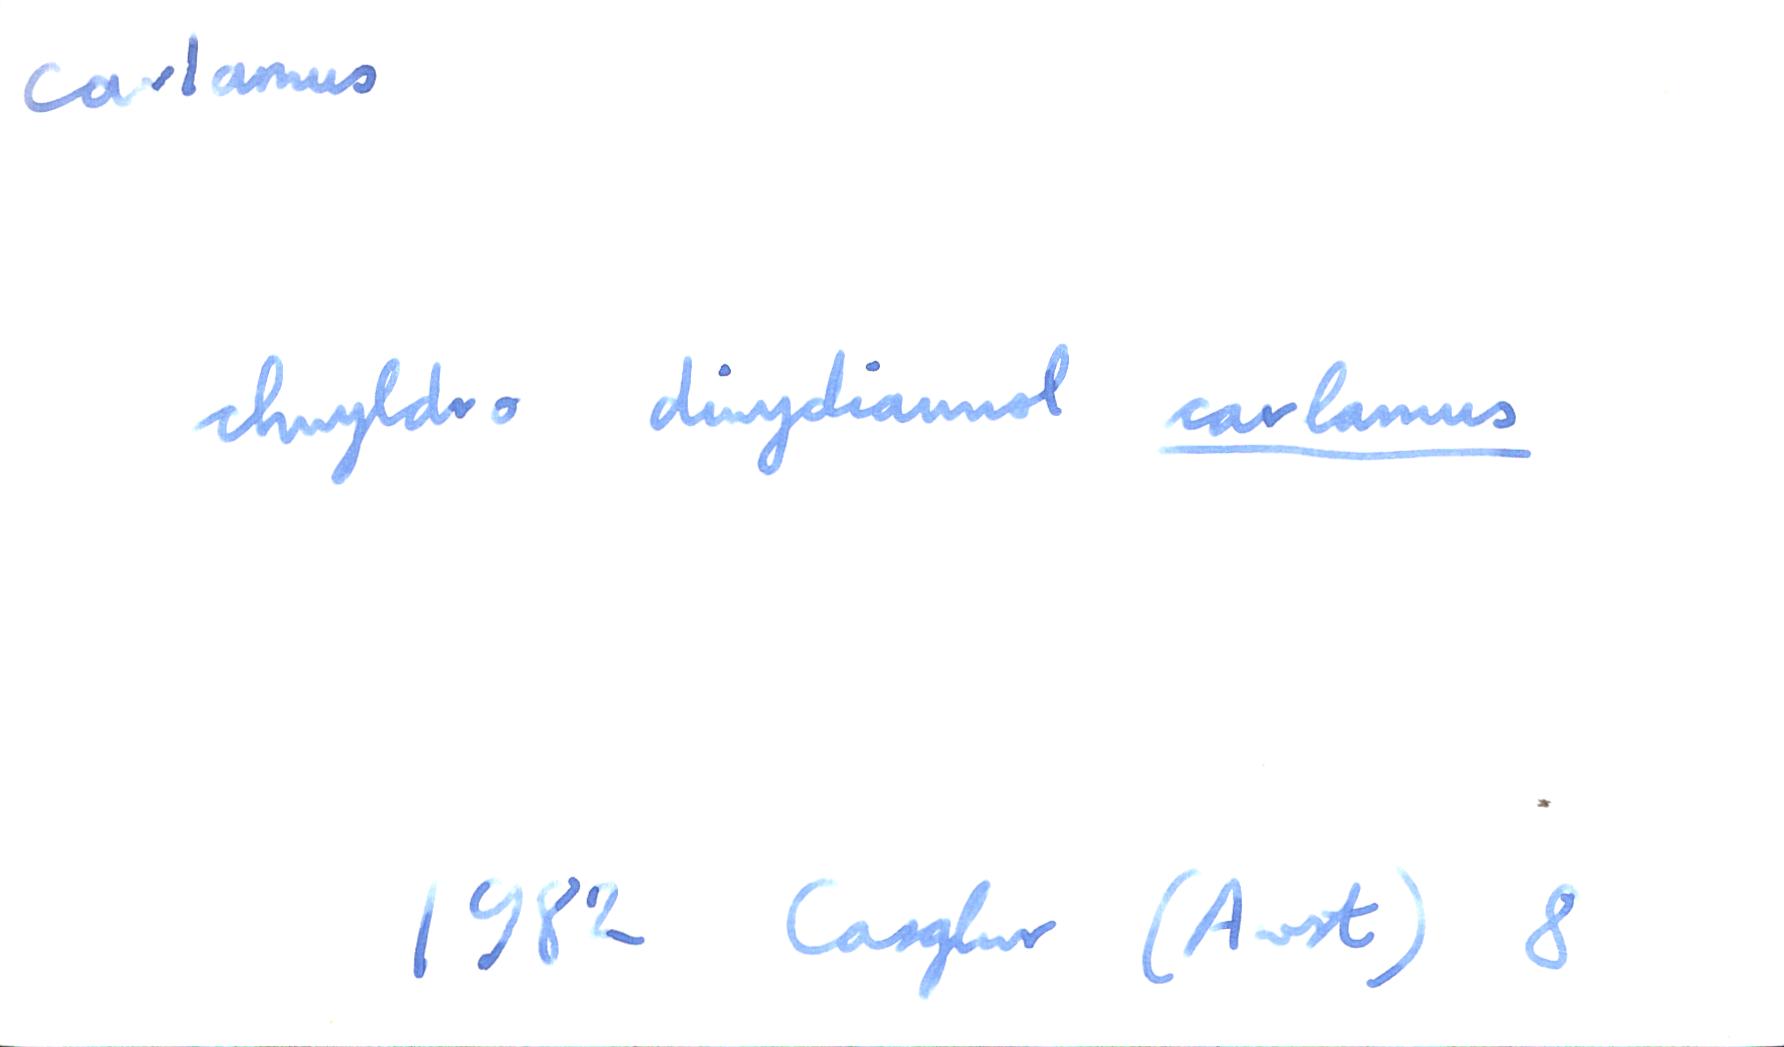 carlamus
chwyldro diwydiannol carlamus
1982 Casglwr (Awst) 8